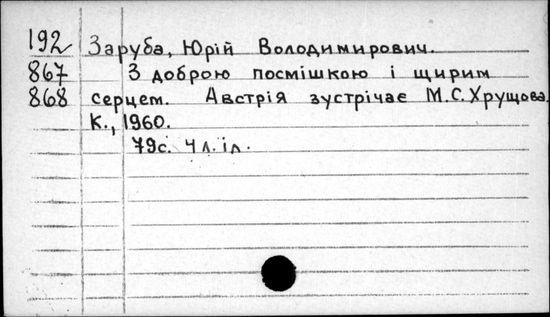 192 Заруба, Юрій Володимирович.
867 З доброю посмішкою і щирим
868 серцем. Австрія зустрічає М.С.Хрущова.
К., 1960.
79с. 4 л. іл.